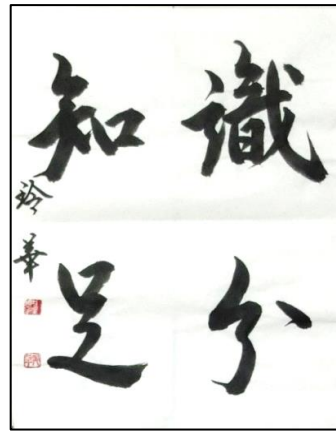 識分
知足
玲華